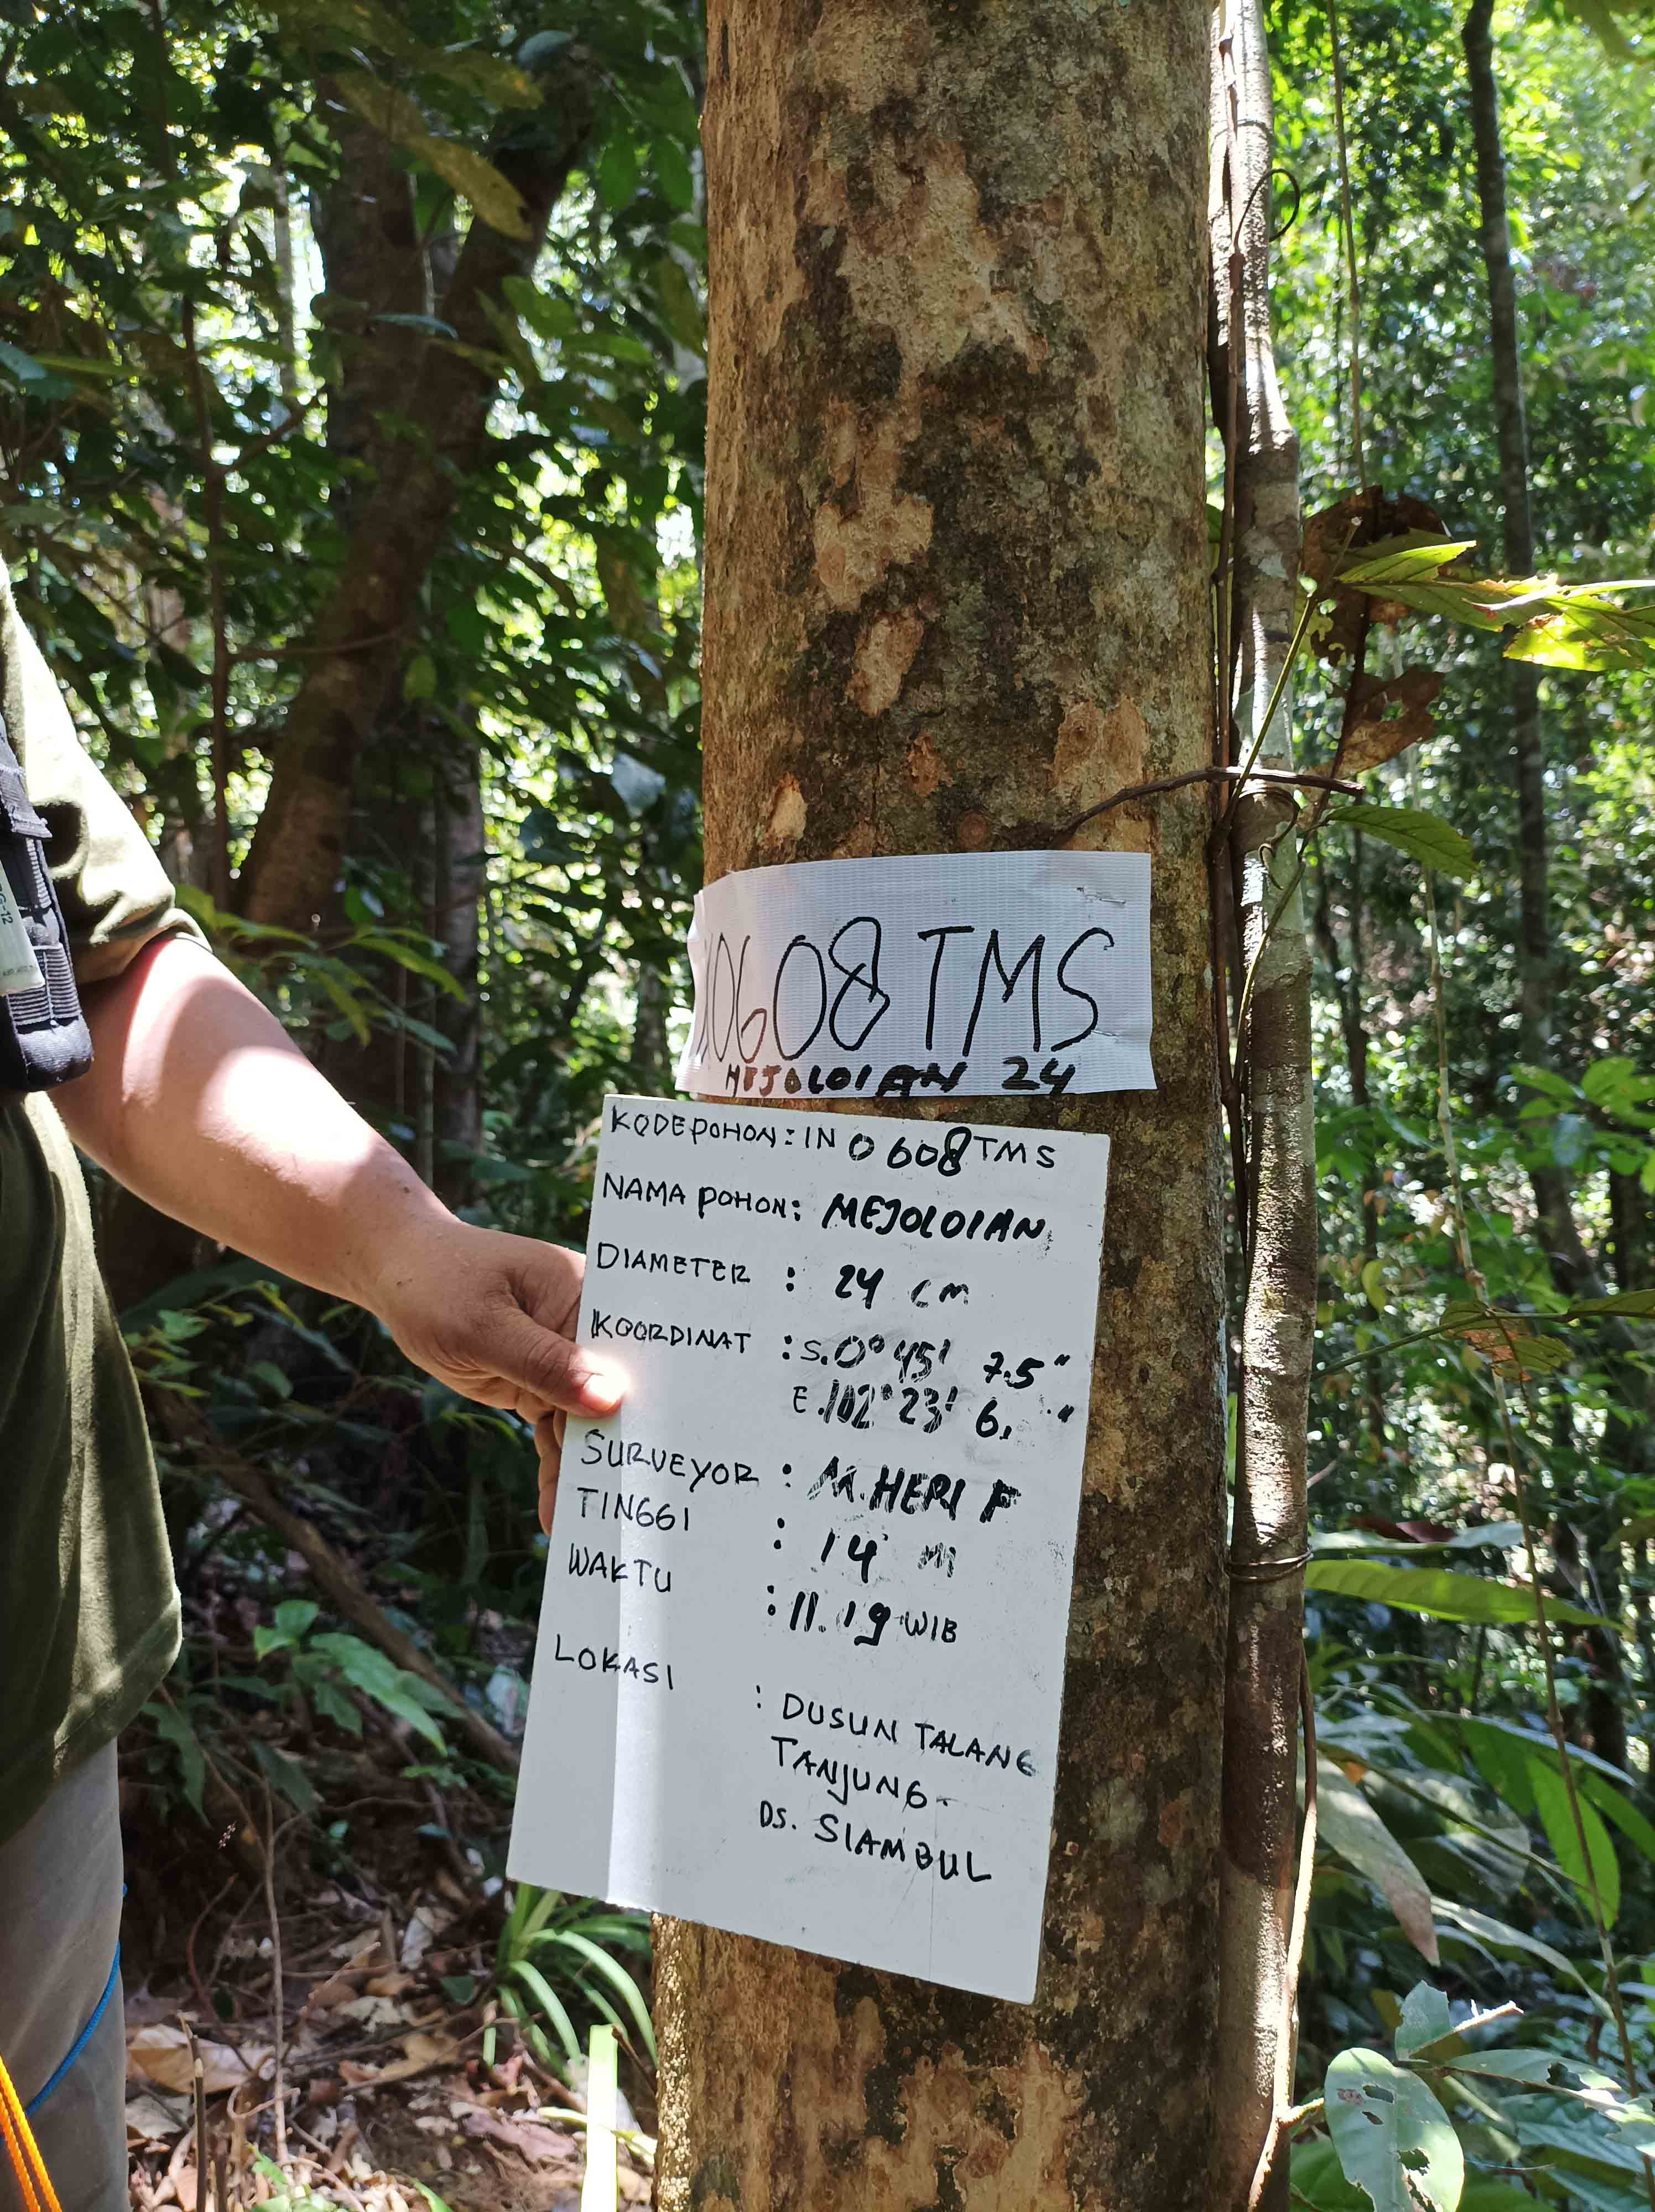 0608 TMS
MEJOLOIAN 24
KODE POHON : IN 0608 TMS
NAMA POHON : MEJOLOIAN
DIAMETER : 24 cm
KOORDINAT : S.0° 45' 7.5"
E.102° 23' 6. "
SURVEYOR : M. HERI F
TINGGI : 14 m
WAKTU : 11.19 WIB
LOKASI : DUSUN TALANG
TANJUNG-
DS. SIAMBUL